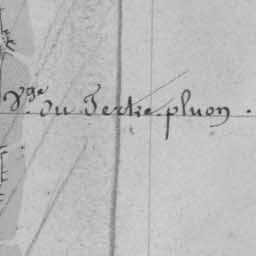 Vge du Tertre pluon.